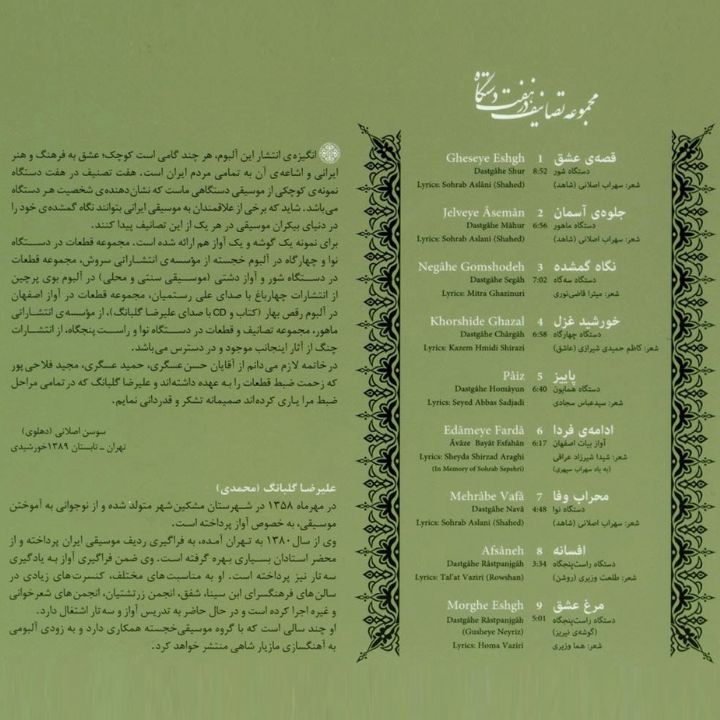 مجموعه تصانیف در هفت دستگاه
Gheseye Eshgh 1 قصه‌ی عشق
Dastgâhe Shur 8:52 دستگاه شور
Lyrics: Sohrab Aslâni (Shahed) شعر: سهراب اصلانی (شاهد)
Jelveye Âsemân 2 جلوه‌ی آسمان
Dastgâhe Mâhur 6:56 دستگاه ماهور
Lyrics: Sohrab Aslani (Shahed) شعر: سهراب اصلانی (شاهد)
Negâhe Gomshodeh 3 نگاه گمشده
Dastgâhe Segâh 7:02 دستگاه سه‌گاه
Lyrics: Mitra Ghazinuri شعر: میترا قاضی‌نوری
Khorshide Ghazal 4 خورشید غزل
Dastgâhe Chârgâh 6:58 دستگاه چهارگاه
Lyrics: Kazem Hmidi Shirazi شعر: کاظم حمیدی شیرازی (عاشق)
Pâiz 5 پاییز
Dastgâhe Homâyun 6:40 دستگاه همایون
Lyrics: Seyed Abbas Sadjadi شعر: سیدعباس سجادی
Edâmeye Fardâ 6 ادامه‌ی فردا
Âvâze Bayât Esfahân 6:17 آواز بیات اصفهان
Lyrics: Sheyda Shirzad Araghi شعر: شیدا شیرزاد عراقی
(In Memory of Sohrab Sepehri) (به یاد سهراب سپهری)
Mehrâbe Vafâ 7 محراب وفا
Dastgâhe Navâ 4:48 دستگاه نوا
Lyrics: Sohrab Aslani (Shahed) شعر: سهراب اصلانی (شاهد)
Afsâneh 8 افسانه
Dastgâhe Râstpanjgâh 3:34 دستگاه راست‌پنجگاه
Lyrics: Tal'at Vaziri (Rowshan) شعر: طلعت وزیری (روشن)
Morghe Eshgh 9 مرغ عشق
Dastgâhe Râstpanjgâh 5:01 دستگاه راست‌پنجگاه
(Gusheye Neyriz) (گوشه‌ی نیریز)
Lyrics: Homa Vaziri شعر: هما وزیری
انگیزه‌ی انتشار این آلبوم، هر چند گامی است کوچک؛ عشق به فرهنگ و هنر
ایرانی و اشاعه‌ی آن به تمامی مردم ایران است. هفت تصنیف در هفت دستگاه
نمونه‌ی کوچکی از موسیقی دستگاهی ماست که نشان‌دهنده‌ی شخصیت هر دستگاه
می‌باشد. شاید که برخی از علاقمندان به موسیقی ایرانی بتوانند نگاه گمشده‌ی خود را
در دنیای بیکران موسیقی در هر یک از این تصانیف پیدا کنند.
برای نمونه یک گوشه و یک آواز هم ارائه شده است. مجموعه قطعات در دستگاه
نوا و چهارگاه در آلبوم خجسته از مؤسسه‌ی انتشاراتی سروش، مجموعه قطعات
در دستگاه شور و آواز دشتی (موسیقی سنتی و محلی) در آلبوم بوی پرچین
از انتشارات چهارباغ با صدای علی رستمیان، مجموعه قطعات در آواز اصفهان
در آلبوم رقص بهار (کتاب و CD با صدای علیرضا گلبانگ)، از مؤسسه‌ی انتشاراتی
ماهور، مجموعه تصانیف و قطعات در دستگاه نوا و راست پنجگاه، از انتشارات
چنگ از آثار اینجانب موجود و در دسترس می‌باشد.
در خاتمه لازم می‌دانم از آقایان حسن عسگری، حمید عسگری، مجید فلاحی‌پور
که زحمت ضبط قطعات را به عهده داشته‌اند و علیرضا گلبانگ که در تمامی مراحل
ضبط مرا یاری کرده‌اند صمیمانه تشکر و قدردانی نمایم.
سوسن اصلانی (دهلوی)
تهران ـ تابستان ۱۳۸۹ خورشیدی
علیرضا گلبانگ (محمدی)
در مهرماه ۱۳۵۸ در شهرستان مشکین‌شهر متولد شده و از نوجوانی به آموختن
موسیقی، به خصوص آواز پرداخته است.
وی از سال ۱۳۸۰ به تهران آمده، به فراگیری ردیف موسیقی ایران پرداخته و از
محضر استادان بسیاری بهره گرفته است. وی ضمن فراگیری آواز به یادگیری
سه تار نیز پرداخته است. او به مناسبت‌های مختلف، کنسرت‌های زیادی در
سالن‌های فرهنگسرای ابن سینا، شفق، انجمن زرتشتیان، انجمن‌های شعرخوانی
و غیره اجرا کرده است و در حال حاضر به تدریس آواز و سه‌تار اشتغال دارد.
او چند سالی است که با گروه موسیقی خجسته همکاری دارد و به زودی آلبومی
به آهنگسازی مازیار شاهی منتشر خواهد کرد.